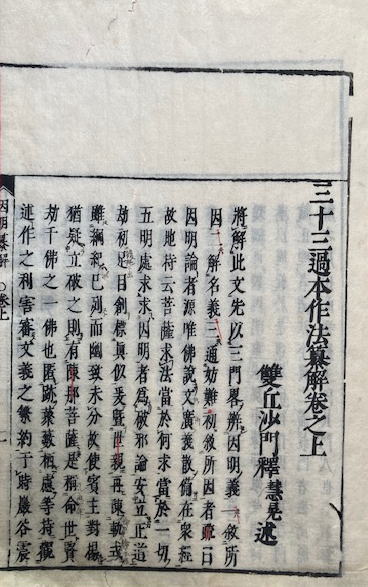 三十三過本作法纂解卷之上
雙丘沙門釋慧晃述
將解此文先以三門畧辨因明義一敘所
因二解名義三通妨難初敘所因者疏曰
因明論者源唯佛說文廣義散備在衆經
故地持云菩薩求法當於何求當於一切
五明處求求因明者為破邪論安立正道
劫初足目創標真似爰暨世親再陳軌式
雖綱紀已列而幽致未分故使賓主對揚
猶疑立破之則有陳那菩薩是稱命世賢
劫千佛之一佛也匿跡巖藪栖慮等持觀
述作之利害審文義之繁約于時巖谷震
因明纂解 ○卷上 一